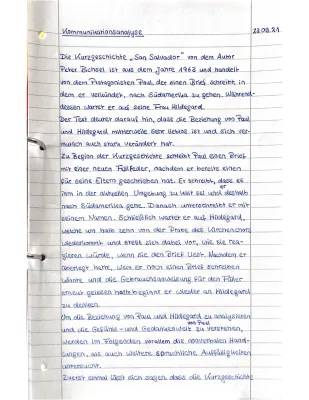 Kommunikationsanalyse 23.08.21
Die Kurzgeschichte „San Salvador" von dem Autor
Peter Bichsel ist aus dem Jahre 1963 und handelt
von dem Protagonisten Paul, der einen Brief schreibt in
dem er verkündet, nach Südamerika zu gehen. Während-
dessen wartet er auf seine Frau Hildegard.
Der Text deutet darauf hin, dass die Beziehung von Paul
und Hildegard mittlerweile sehr lieblos ist und sich ver-
mutlich auch stark verändert hat.
Zu Beginn der Kurzgeschichte schreibt Paul einen Brief
mit einer neuen Füllfeder, nachdem er bereits einen
für seine Eltern geschrieben hat. Er schreibt, dass es
ihm in der aktuellen Umgebung zu kalt sei und er deshalb
nach Südamerika gehe. Danach unterschreibt er mit
seinem Namen. Schließlich wartet er auf Hildegard,
welche um halb zehn von der Probe des Kirchenchors
wiederkommt und stellt sich dabei vor, wie sie rea-
gieren würde, wenn sie den Brief liest. Nachdem er
überlegt hatte, wem er noch einen Brief schreiben
könnte und die Gebrauchsanweisung für den Füller
erneut gelesen hatte beginnt er wieder an Hildegard
zu denken.
Um die Beziehung von Paul und Hildegard zu analysieren
und die Gefühls- und Gedankenwelt von Paul zu verstehen,
werden im Folgenden vorallem die nonverbalen Hand-
lungen, als auch weitere sprachliche Auffälligkeiten
untersucht.
Zuerst einmal lässt sich sagen dass die Kurzgeschichte